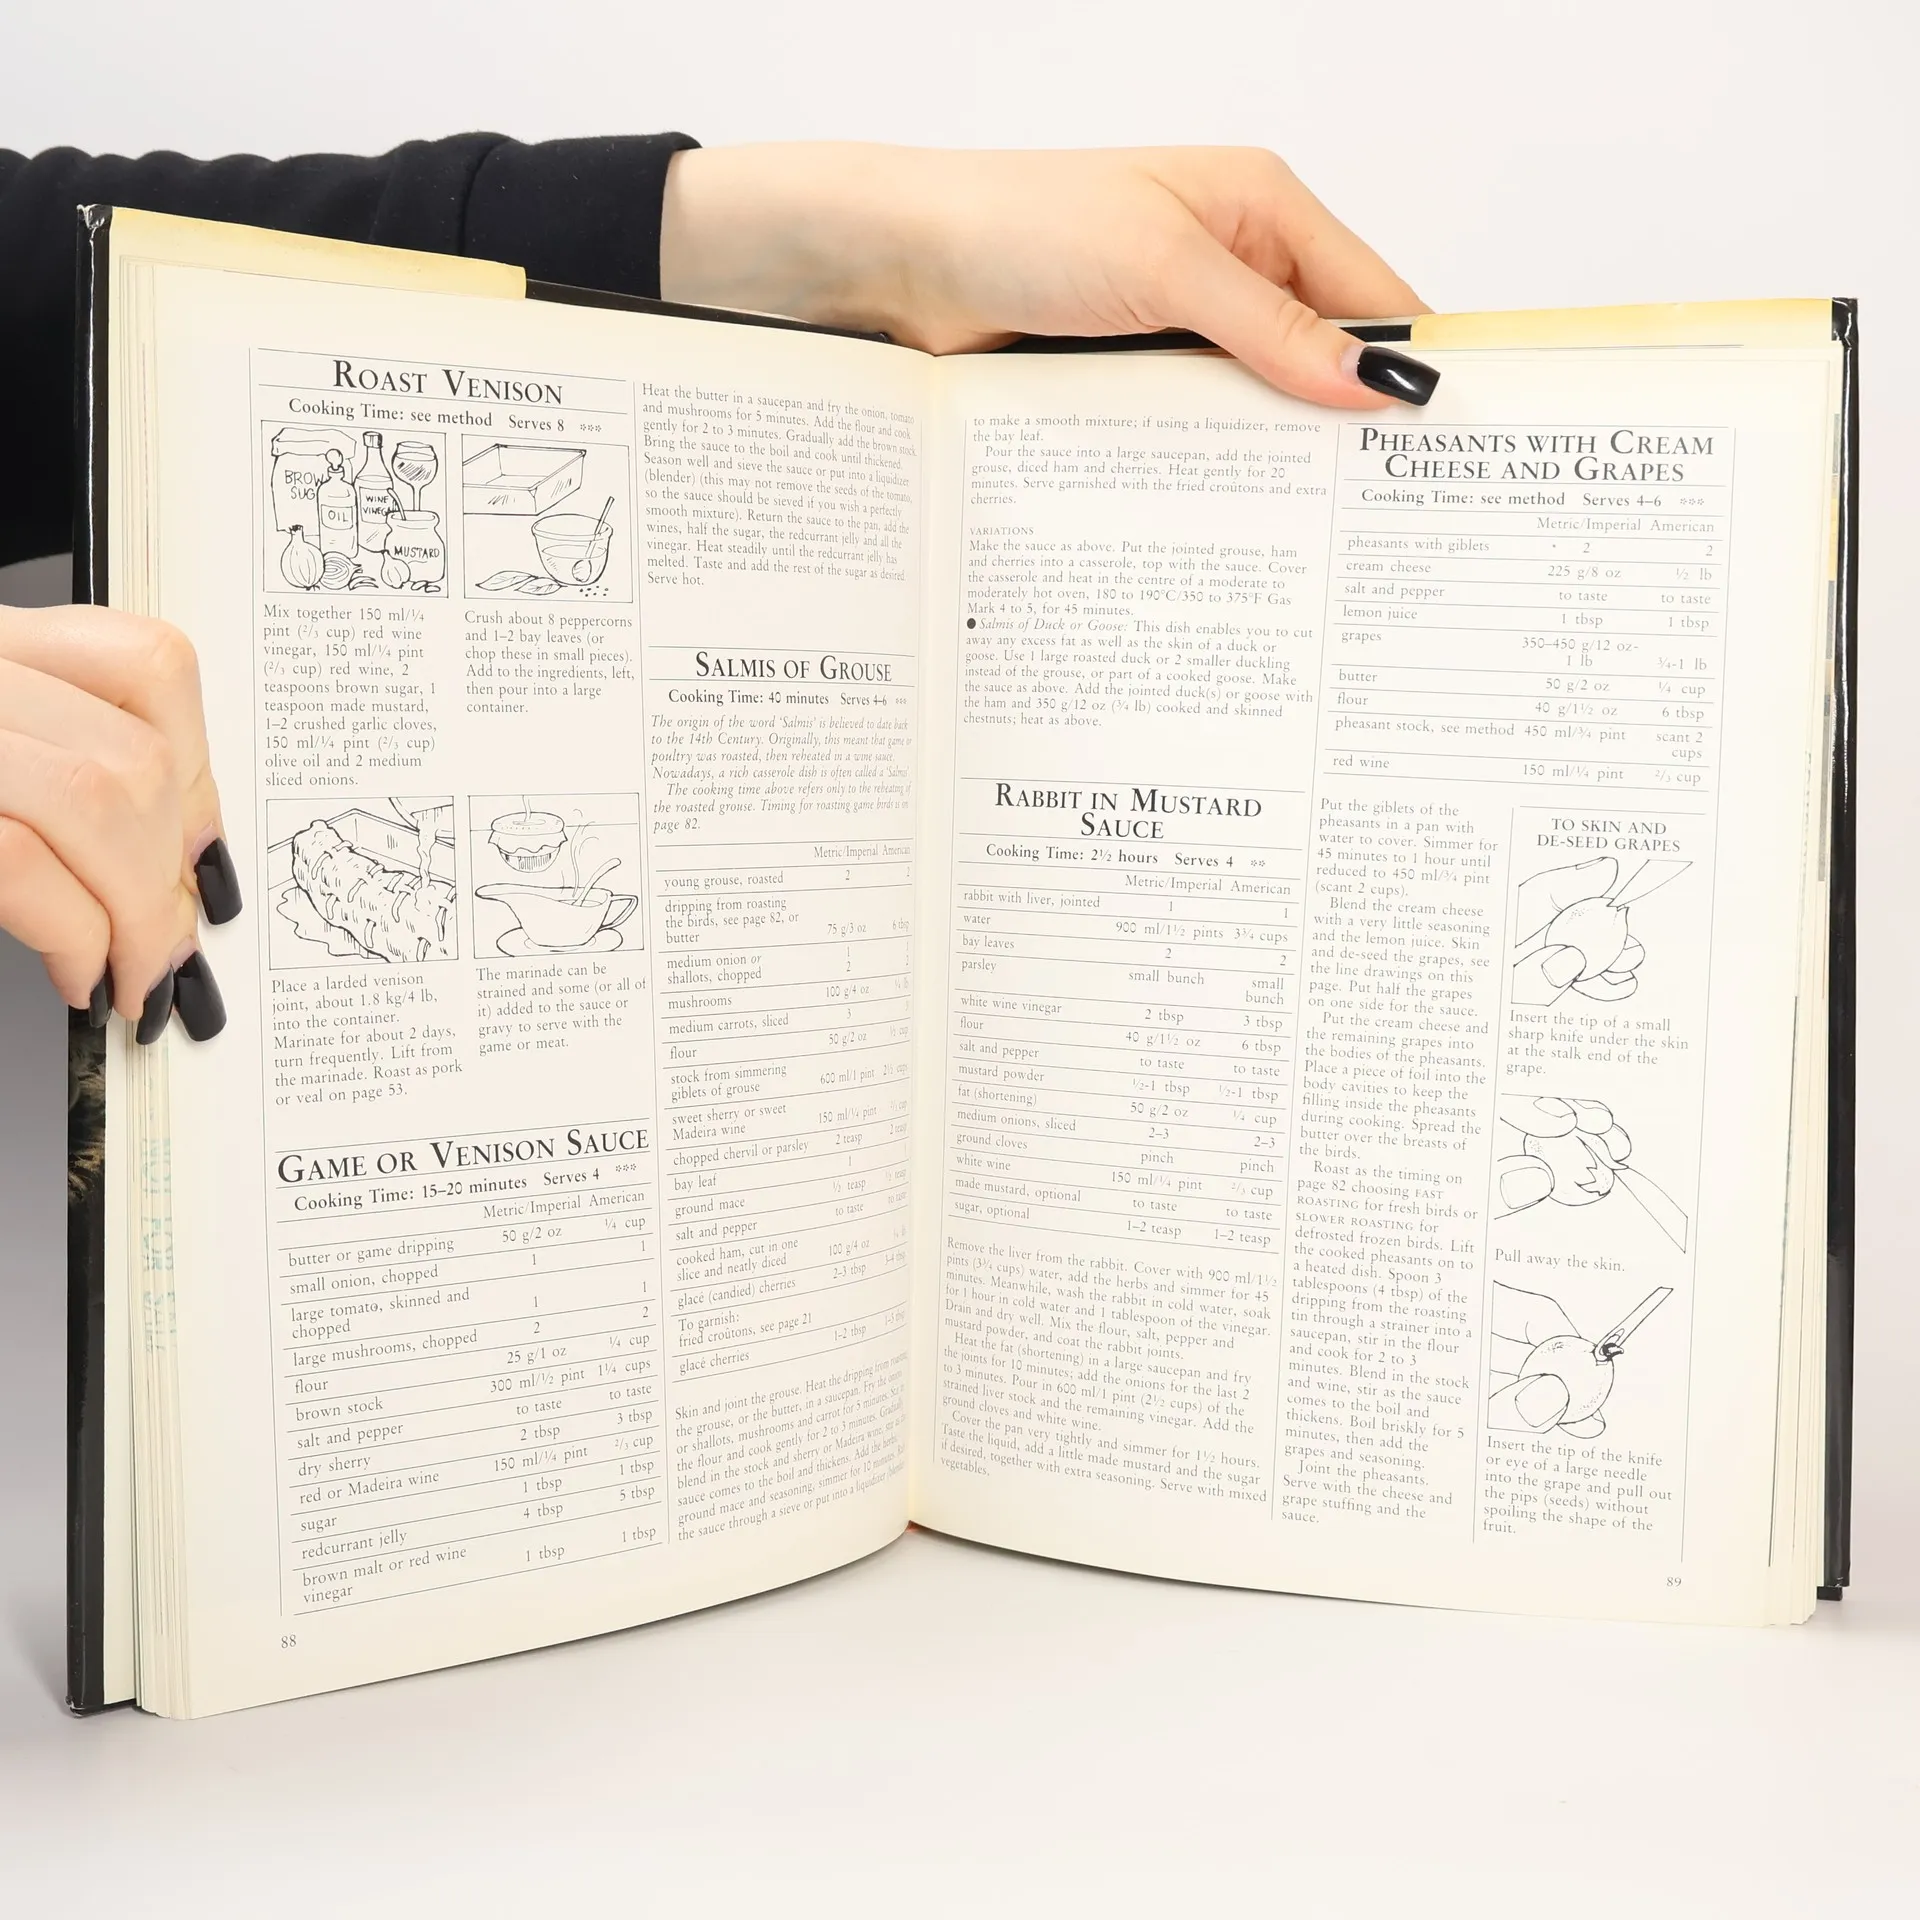 ROAST VENISON
Cooking Time: see method Serves 8 ***
BROW
SUG
OIL
WINE
VINEGA
MUSTARD
Mix together 150 ml/¼
pint (⅔ cup) red wine
vinegar, 150 ml/¼ pint
(⅔ cup) red wine, 2
teaspoons brown sugar, 1
teaspoon made mustard,
1–2 crushed garlic cloves,
150 ml/¼ pint (⅔ cup)
olive oil and 2 medium
sliced onions.
Crush about 8 peppercorns
and 1–2 bay leaves (or
chop these in small pieces).
Add to the ingredients, left,
then pour into a large
container.
Place a larded venison
joint, about 1.8 kg/4 lb,
into the container.
Marinate for about 2 days,
turn frequently. Lift from
the marinade. Roast as pork
or veal on page 53.
The marinade can be
strained and some (or all of
it) added to the sauce or
gravy to serve with the
game or meat.
GAME OR VENISON SAUCE
Cooking Time: 15–20 minutes Serves 4 ***
Metric/Imperial American
butter or game dripping 50 g/2 oz ¼ cup
small onion, chopped 1 1
large tomato, skinned and
chopped 1 1
large mushrooms, chopped 2 2
flour 25 g/1 oz ¼ cup
brown stock 300 ml/½ pint 1¼ cups
salt and pepper to taste to taste
dry sherry 2 tbsp 3 tbsp
red or Madeira wine 150 ml/¼ pint ⅔ cup
sugar 1 tbsp 1 tbsp
redcurrant jelly 4 tbsp 5 tbsp
brown malt or red wine
vinegar 1 tbsp 1 tbsp
88
Heat the butter in a saucepan and fry the onion, tomato
and mushrooms for 5 minutes. Add the flour and cook
gently for 2 to 3 minutes. Gradually add the brown stock.
Bring the sauce to the boil and cook until thickened.
Season well and sieve the sauce or put into a liquidizer
(blender) (this may not remove the seeds of the tomato,
so the sauce should be sieved if you wish a perfectly
smooth mixture). Return the sauce to the pan, add the
wines, half the sugar, the redcurrant jelly and all the
vinegar. Heat steadily until the redcurrant jelly has
melted. Taste and add the rest of the sugar as desired.
Serve hot.
SALMIS OF GROUSE
Cooking Time: 40 minutes Serves 4–6 ***
The origin of the word 'Salmis' is believed to date back
to the 14th Century. Originally, this meant that game or
poultry was roasted, then reheated in a wine sauce.
Nowadays, a rich casserole dish is often called a 'Salmis'
The cooking time above refers only to the reheating of
the roasted grouse. Timing for roasting game birds is on
page 82.
Metric/Imperial American
young grouse, roasted 2 2
dripping from roasting
the birds, see page 82, or
butter 75 g/3 oz 6 tbsp
medium onion or 1 1
shallots, chopped 2 2
mushrooms 100 g/4 oz ¼ lb
medium carrots, sliced 3 3
flour 50 g/2 oz ½ cup
stock from simmering
giblets of grouse 600 ml/1 pint 2½ cups
sweet sherry or sweet
Madeira wine 150 ml/¼ pint ⅔ cup
chopped chervil or parsley 2 teasp 2 teasp
bay leaf 1 1
ground mace ½ teasp ½ teasp
salt and pepper to taste to taste
cooked ham, cut in one
slice and neatly diced 100 g/4 oz ¼ lb
glacé (candied) cherries 2–3 tbsp 3–4 tbsp
To garnish:
fried croûtons, see page 21
glacé cherries 1–2 tbsp 1–3 tbsp
Skin and joint the grouse. Heat the dripping from roasting
the grouse, or the butter, in a saucepan. Fry the onion
or shallots, mushrooms and carrot for 5 minutes. Stir in
the flour and cook gently for 2 to 3 minutes. Gradually
blend in the stock and sherry or Madeira wine, stir as the
sauce comes to the boil and thickens. Add the herbs,
ground mace and seasoning, simmer for 10 minutes. Rub
the sauce through a sieve or put into a liquidizer (blender)
to make a smooth mixture; if using a liquidizer, remove
the bay leaf.
Pour the sauce into a large saucepan, add the jointed
grouse, diced ham and cherries. Heat gently for 20
minutes. Serve garnished with the fried croûtons and extra
cherries.
VARIATIONS
Make the sauce as above. Put the jointed grouse, ham
and cherries into a casserole, top with the sauce. Cover
the casserole and heat in the centre of a moderate to
moderately hot oven, 180 to 190°C/350 to 375°F Gas
Mark 4 to 5, for 45 minutes.
● Salmis of Duck or Goose: This dish enables you to cut
away any excess fat as well as the skin of a duck or
goose. Use 1 large roasted duck or 2 smaller duckling
instead of the grouse, or part of a cooked goose. Make
the sauce as above. Add the jointed duck(s) or goose with
the ham and 350 g/12 oz (¾ lb) cooked and skinned
chestnuts; heat as above.
RABBIT IN MUSTARD
SAUCE
Cooking Time: 2½ hours Serves 4 **
Metric/Imperial American
rabbit with liver, jointed 1 1
water 900 ml/1½ pints 3¾ cups
bay leaves 2 2
parsley small bunch small
bunch
white wine vinegar 2 tbsp 3 tbsp
flour 40 g/1½ oz 6 tbsp
salt and pepper to taste to taste
mustard powder ½–1 tbsp ½–1 tbsp
fat (shortening) 50 g/2 oz ¼ cup
medium onions, sliced 2–3 2–3
ground cloves pinch pinch
white wine 150 ml/¼ pint ⅔ cup
made mustard, optional to taste to taste
sugar, optional 1–2 teasp 1–2 teasp
Remove the liver from the rabbit. Cover with 900 ml/1½
pints (3¾ cups) water, add the herbs and simmer for 45
minutes. Meanwhile, wash the rabbit in cold water, soak
for 1 hour in cold water and 1 tablespoon of the vinegar.
Drain and dry well. Mix the flour, salt, pepper and
mustard powder, and coat the rabbit joints.
Heat the fat (shortening) in a large saucepan and fry
the joints for 10 minutes; add the onions for the last 2
to 3 minutes. Pour in 600 ml/1 pint (2½ cups) of the
strained liver stock and the remaining vinegar. Add the
ground cloves and white wine.
Cover the pan very tightly and simmer for 1½ hours.
Taste the liquid, add a little made mustard and the sugar
if desired, together with extra seasoning. Serve with mixed
vegetables.
PHEASANTS WITH CREAM
CHEESE AND GRAPES
Cooking Time: see method Serves 4–6 ***
Metric/Imperial American
pheasants with giblets 2 2
cream cheese 225 g/8 oz ½ lb
salt and pepper to taste to taste
lemon juice 1 tbsp 1 tbsp
grapes 350–450 g/12 oz–
1 lb ¾–1 lb
butter 50 g/2 oz ¼ cup
flour 40 g/1½ oz 6 tbsp
pheasant stock, see method 450 ml/¾ pint scant 2
cups
red wine 150 ml/¼ pint ⅔ cup
Put the giblets of the
pheasants in a pan with
water to cover. Simmer for
45 minutes to 1 hour until
reduced to 450 ml/¾ pint
(scant 2 cups).
Blend the cream cheese
with a very little seasoning
and the lemon juice. Skin
and de-seed the grapes, see
the line drawings on this
page. Put half the grapes
on one side for the sauce.
Put the cream cheese and
the remaining grapes into
the bodies of the pheasants.
Place a piece of foil into the
body cavities to keep the
filling inside the pheasants
during cooking. Spread the
butter over the breasts of
the birds.
Roast as the timing on
page 82 choosing FAST
ROASTING for fresh birds or
SLOWER ROASTING for
defrosted frozen birds. Lift
the cooked pheasants on to
a heated dish. Spoon 3
tablespoons (4 tbsp) of the
dripping from the roasting
tin through a strainer into a
saucepan, stir in the flour
and cook for 2 to 3
minutes. Blend in the stock
and wine, stir as the sauce
comes to the boil and
thickens. Boil briskly for 5
minutes, then add the
grapes and seasoning.
Joint the pheasants.
Serve with the cheese and
grape stuffing and the
sauce.
TO SKIN AND
DE-SEED GRAPES
Insert the tip of a small
sharp knife under the skin
at the stalk end of the
grape.
Pull away the skin.
Insert the tip of the knife
or eye of a large needle
into the grape and pull out
the pips (seeds) without
spoiling the shape of the
fruit.
89